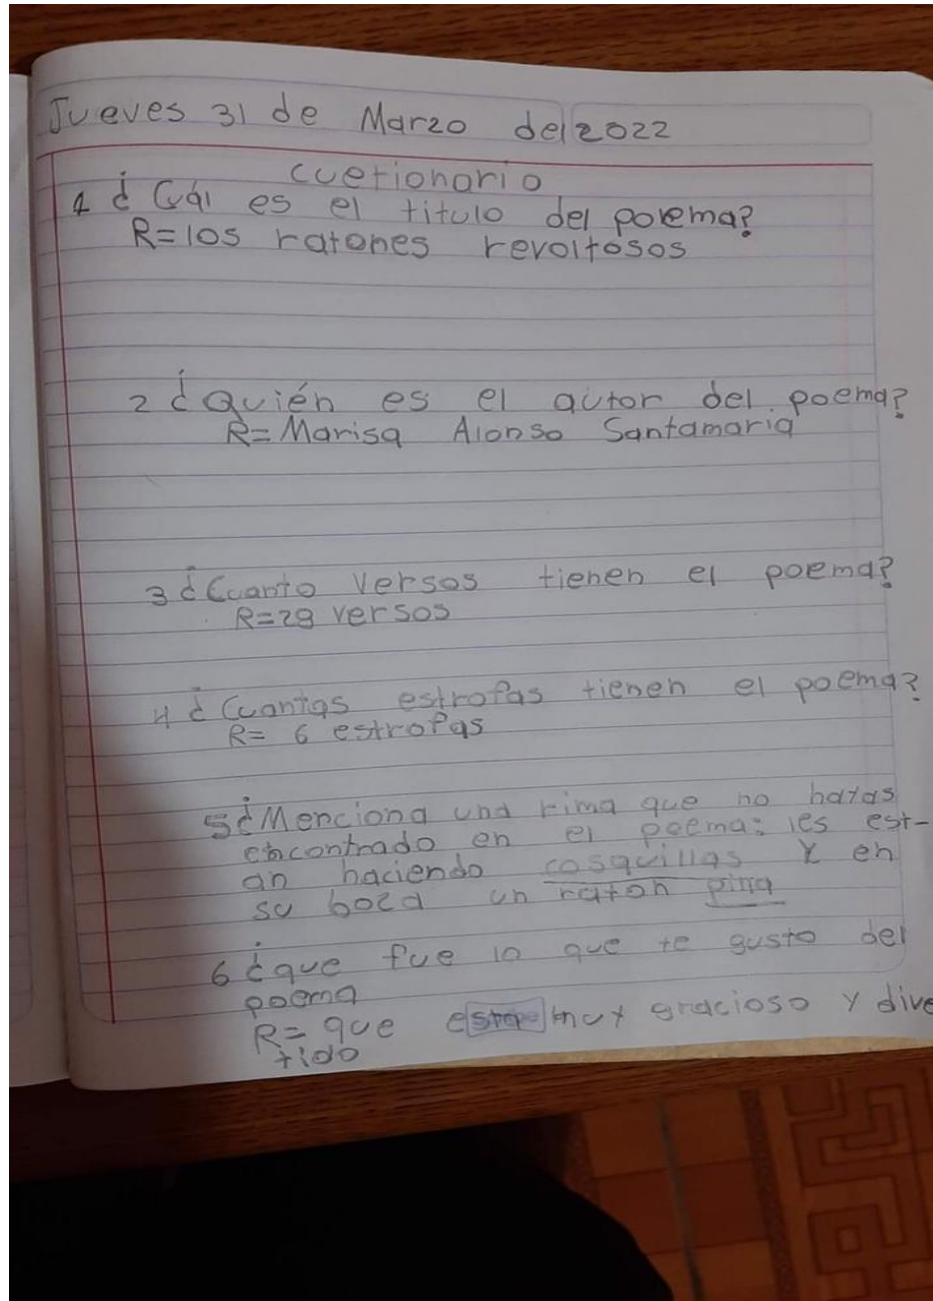 Jueves 31 de Marzo del 2022
cuetionario
1 ¿Cuál es el titulo del porema?
R= los ratones revoltosos
2 ¿Quién es el autor del poema?
R= Marisa Alonso Santamaria
3 ¿Cuanto versos tienen el poema?
R= 28 versos
4 ¿Cuantas estrofas tienen el poema?
R= 6 estrofas
5 ¿Menciona una rima que no hayas
encontrado en el poema: les est-
an haciendo cosquillas y en
su boca un raton
6 ¿que fue lo que te gusto del
poema
R= que muy gracioso y dive
tido